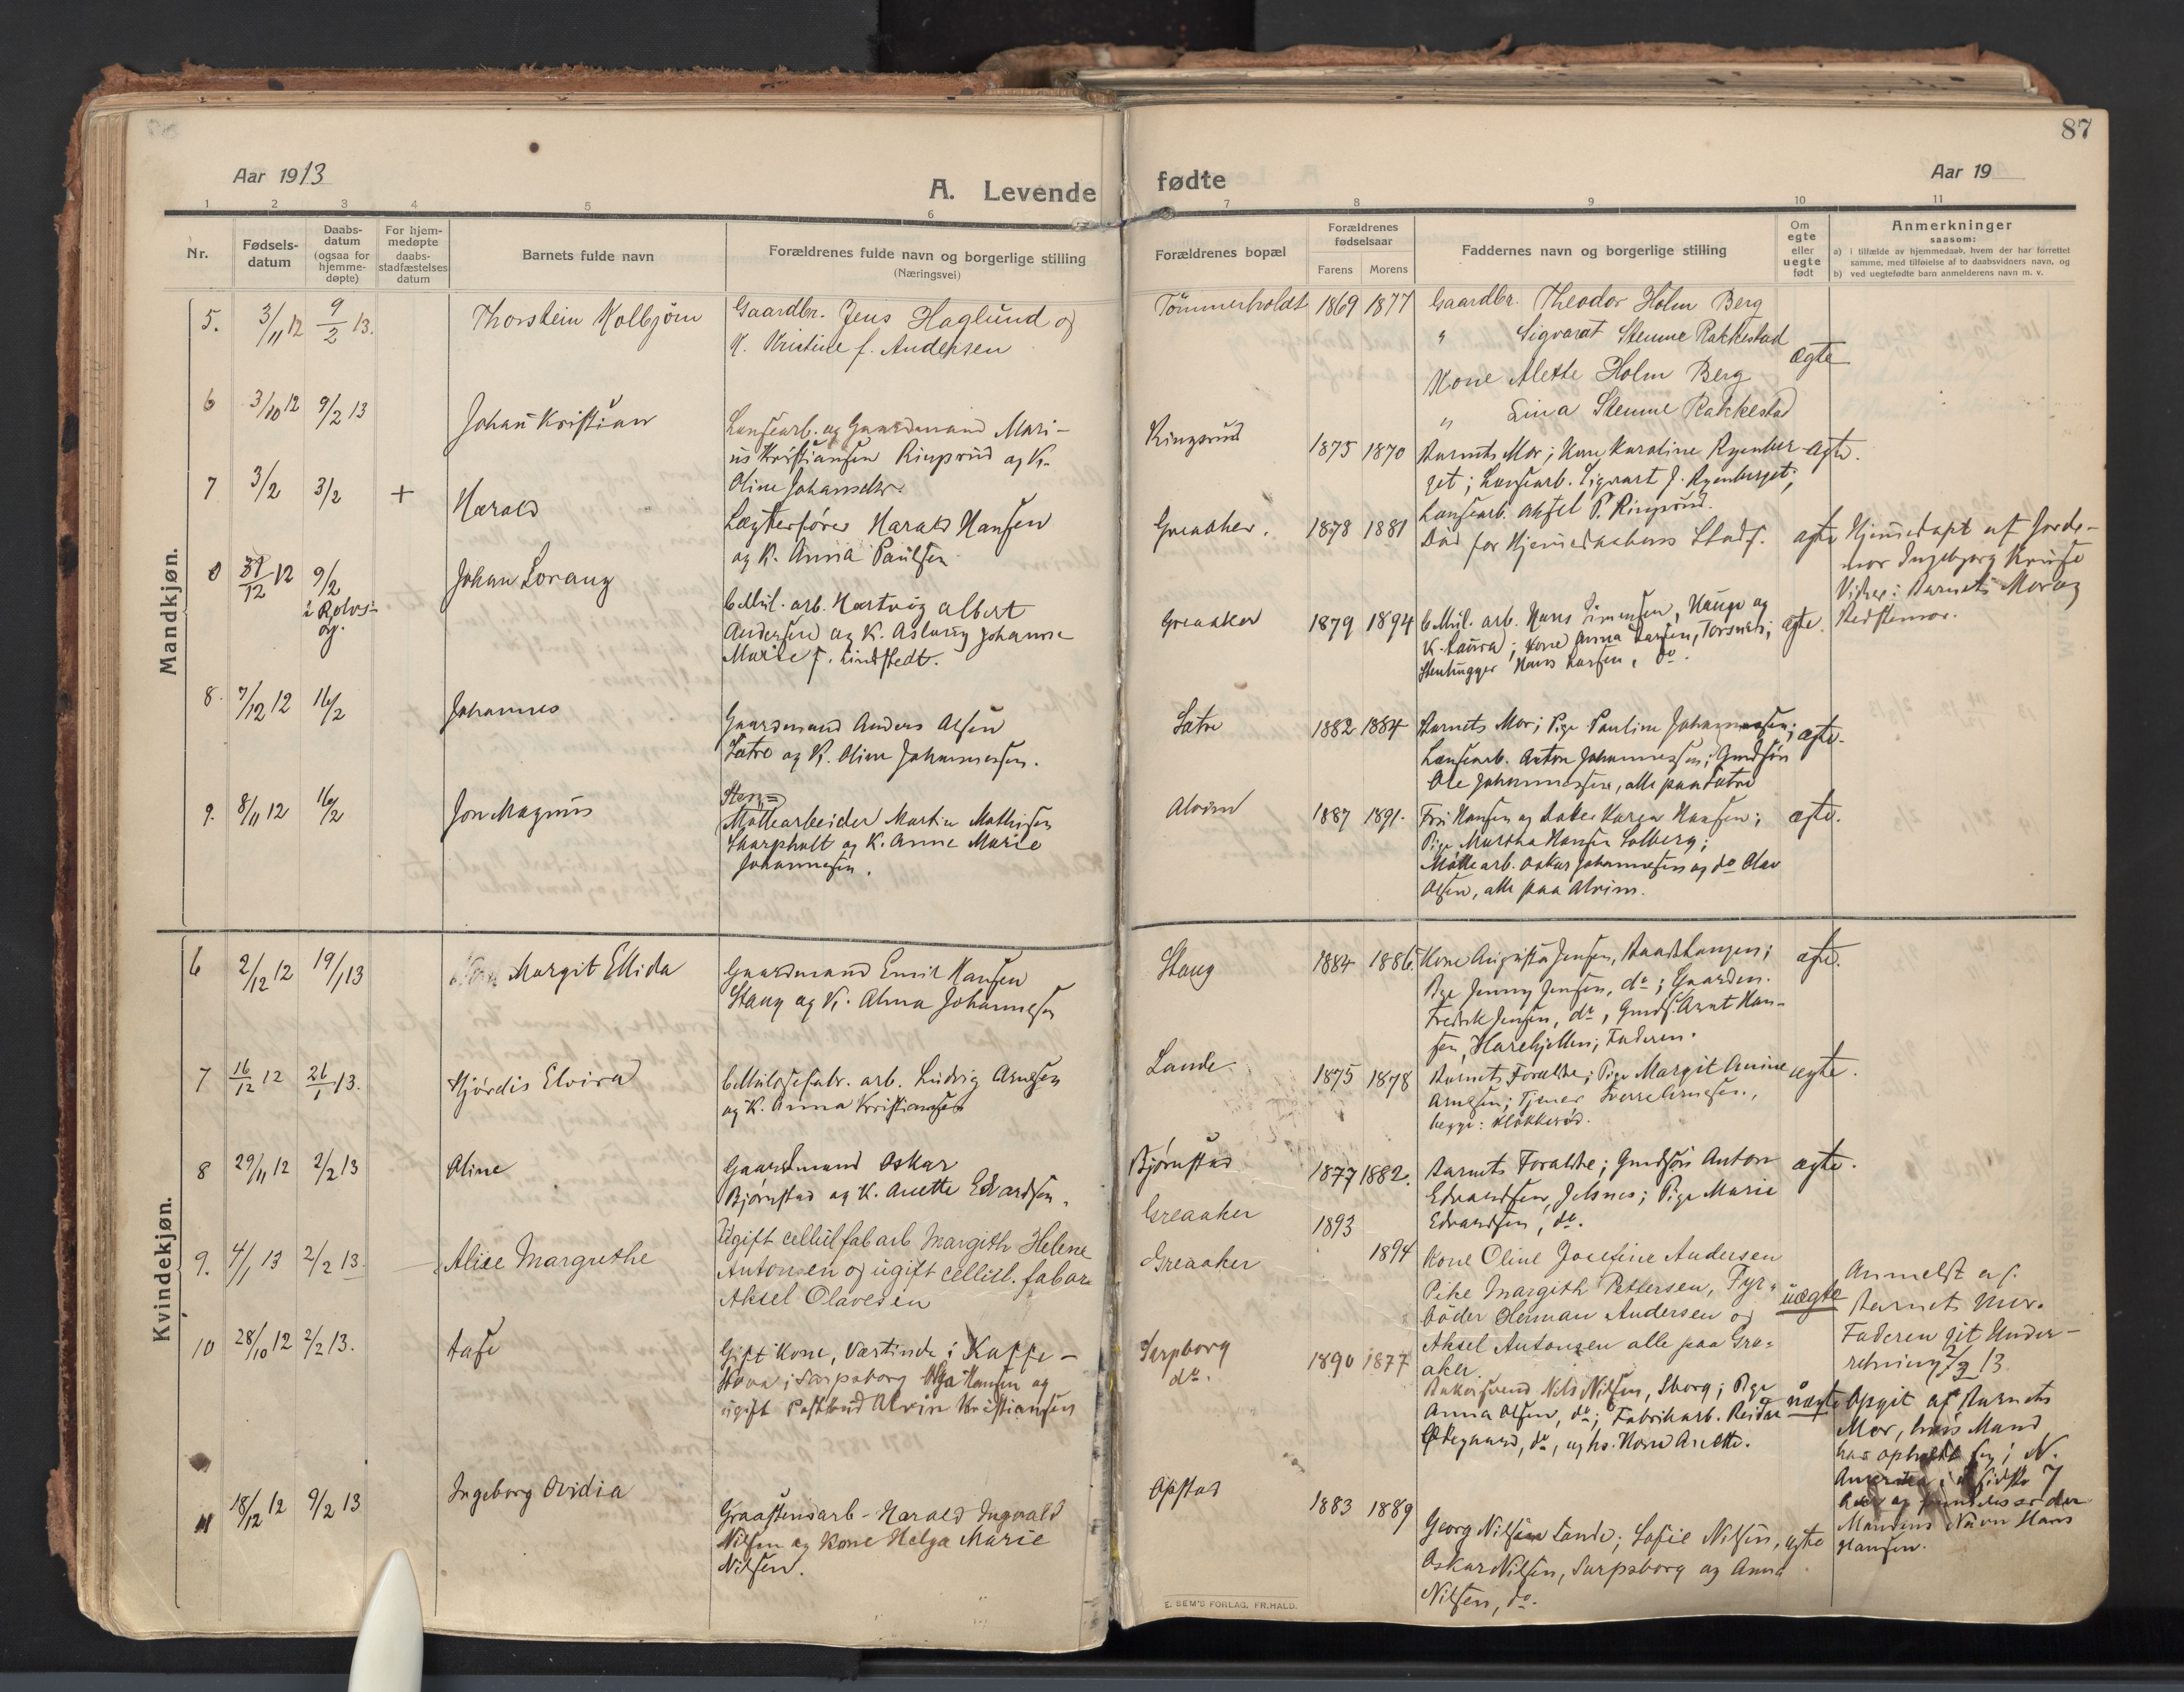 87
Aar 1913
A. Levende
fødte
Aar 19
1 2 3 4 5 6
7 8 9 10 11
Nr.
Fødsels-
datum
Daabs-
datum
(ogsaa for
hjemme-
døpte)
For hjem-
medøpte
daabs-
stadfæstelses
datum
Barnets fulde navn
Forældrenes fulde navn og borgerlige stilling
(Næringsvei)
Forældrenes bopæl
Forældrenes
fødselsaar
Farens Morens
Faddernes navn og borgerlige stilling
Om
egte
eller
uegte
født
Anmerkninger
saasom:
a) i tilfælde av hjemmedaab, hvem der har forrettet
samme, med tilføielse af to daabsvidners navn, og
b) ved uegtefødte barn anmelderens navn m. v.
Mandkjøn.
5. 3/11 12 9/2 13. Thorstein Kolbjörn
Gaardbr. Jens Haglund og
K. Kristine f. Andersen
Tömmerholdt 1869 1877
Gaardbr. Theodor Holm Berg
" Sigvarat Stemme Rakkestad
Kone Alette Holm Berg
" Lina Stemme Rakkestad
Ægte
6 3/10 12 9/2 13 Johan Kristian
Lensearb. og Gaardmand Mari-
us Kristiansen Ringsrud og K.
Oline Johansdtr.
Ringsrud 1875 1870
Barnets Mor; Kone Karoline Ryenber-
get; Lensearb. Sigvart J. Ryenberget;
Lensearb. Aksel P. Ringsrud.
ægte.
7 3/2 3/2 + Harald
Lægterfører Harald Hansen
og K. Anna Paulsen
Greaaker. 1878 1881
Død før Hjemedaabens Stadf.
ægte
Hjemmedøpt af Jorde-
mor Ingeborg Kruse
Vidner: Barnets Mor og
Bedstemor.
8 31/12 12 9/2
i Rolvs-
øy.
Johan Lorang
Cellul. arb. Hartvig Albert
Andersen og K. Aslaug Johanne
Marie f. Lindstedt.
Greaaker 1879 1894
Cellul. arb. Hans Simensen, Hauge og
K. Laura; Kone Anna Larsen, Torsnes;
Stenhugger Hans Larsen, do.
ægte.
8. 7/12 12 16/2 Johannes
Gaardmand Anders Olsen
Sætre og K. Oline Johannessen.
Sætre 1882 1884
Barnets Mor; Pige Pauline Johannessen;
Lensearb. Anton Johannessen; Gaardsøn
Ole Johannessen, alle paa Sætre
ægte.
9. 8/11 12 16/2 Jon Magnus
Sten=
Møllearbeider Martin Mathisen
Skarpholt og K. Anne Marie
Johannesen.
Alvim 1887 1891.
Fru Hansen og Karen Hansen;
Pige Martha Hansen Solberg;
Møllearb. Oskar Johannesen og do Olav
Olsen, alle paa Alvim.
ægte.
Kvindekjøn.
6 2/12 12 19/1 13 Margit Ellida
Gaardmand Emil Hansen
Stang og K. Alma Johannesen
Stang 1884 1886.
Kone Augusta Jensen,
Pige Jenny Jensen, do; Gaardm.
Fredrik Jensen, do, Gmds. Arnt Han-
sen, Harehjellen; Faderen.
ægte.
7 16/12 12 26/1 13. Hjørdis Elvira
Cellulosefabr. arb. Ludvig Arnesen
og K. Anna Kristiansen
Lande 1875 1878
Barnets Forældre; Pige Margit Amine
Arnesen; Tjener Sverre Arnesen,
begge: Klokkerød.
ægte.
8 29/11 12 2/2 13 Oline
Gaardmand Oskar
Bjørnstad og K. Anette Edvardsen.
Bjørnstad 1877 1882.
Barnets Forældre; Gmdsøn Anton
Edvardsen, Jelsnes; Pige Marie
Edvardsen, do.
ægte.
9. 4/1 13 2/2 13 Alice Margrethe
Ugift cellulfabarb Margith Helene
Antonsen og ugift cellul. fabar
Aksel Olavesen
Greaaker 1893
Greaaker 1894
Kone Oline Josefine Andersen
Pike Margith Pettersen, Fyr=
böder Herman Andersen og
Aksel Antonsen alle paa Gre=
aker.
uægte
Anmeldt af
Barnets Mor.
Faderen git Under-
retning 2/2 13.
10 28/10 12 2/2 13. Aase
Gift Kone, Værtinde i Kaffe-
stova i Sarpsborg Olga Hansen og
ugift Postbud Alvin Kristiansen
Sarpborg
do. 1890 1877
Bakersvend Nils Nilsen, Sborg; Pige
Anna Olsen, do; Fabrikarb. Reidar
Ødegaard, do, og hs. Kone Anette.
uægte
Opgit af Barnets
Mor, hvis Mand
har opholdt sig i N.
Amerika i de sidste 7
Aar og fremdeles er der
Mandens Navn Hans
Hansen.
11 18/12 12 9/2 13 Ingeborg Ovidia
Graastensarb - Harald Ingvald
Nilsen og Kone Helga Marie
Nilsen.
Opstad 1883 1889
Georg Nilsen Lande; Sofie Nilsen,
Oskar Nilsen, Sarpsborg og Anna
Nilsen, do.
ægte
E. SEM'S FORLAG, FR.HALD.